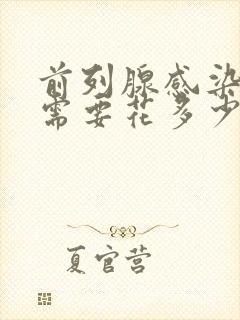 前列腺感染
需要花多少
夏官营